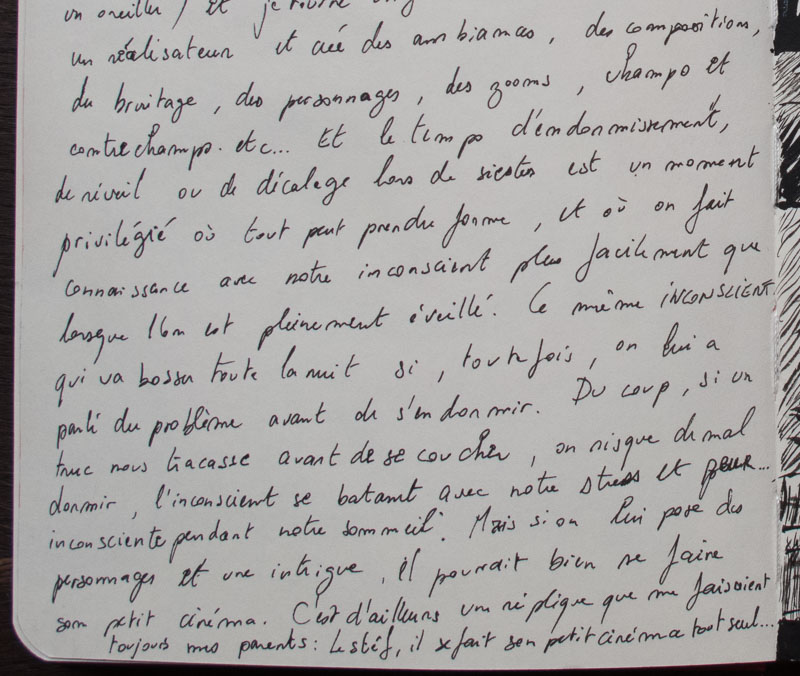 un oreiller, et je tourne
un réalisateur et créé des ambiances, des compositions,
du bruitage, des personnages, des zooms, champs et
contrechamps. etc... Et le temps d'endormissement,
de réveil ou de décalage lors de siestes est un moment
privilégié où tout peut prendre forme, et où on fait
connaissance avec notre inconscient plus facilement que
lorsque l'on est pleinement éveillé. Ce même INCONSCIENT
qui va bosser toute la nuit si, toutefois, on lui a
parlé du problème avant de s'endormir. Du coup, si un
truc nous tracasse avant de se coucher, on risque de mal
dormir, l'inconscient se battant avec notre stress et peur...
inconsciente pendant notre sommeil. Mais si on lui pose des
personnages et une intrigue, il pourrait bien se faire
son petit cinéma. C'est d'ailleurs une réplique que me faisaient
toujours mes parents : Le stéf, il se fait son petit cinéma tout seul...